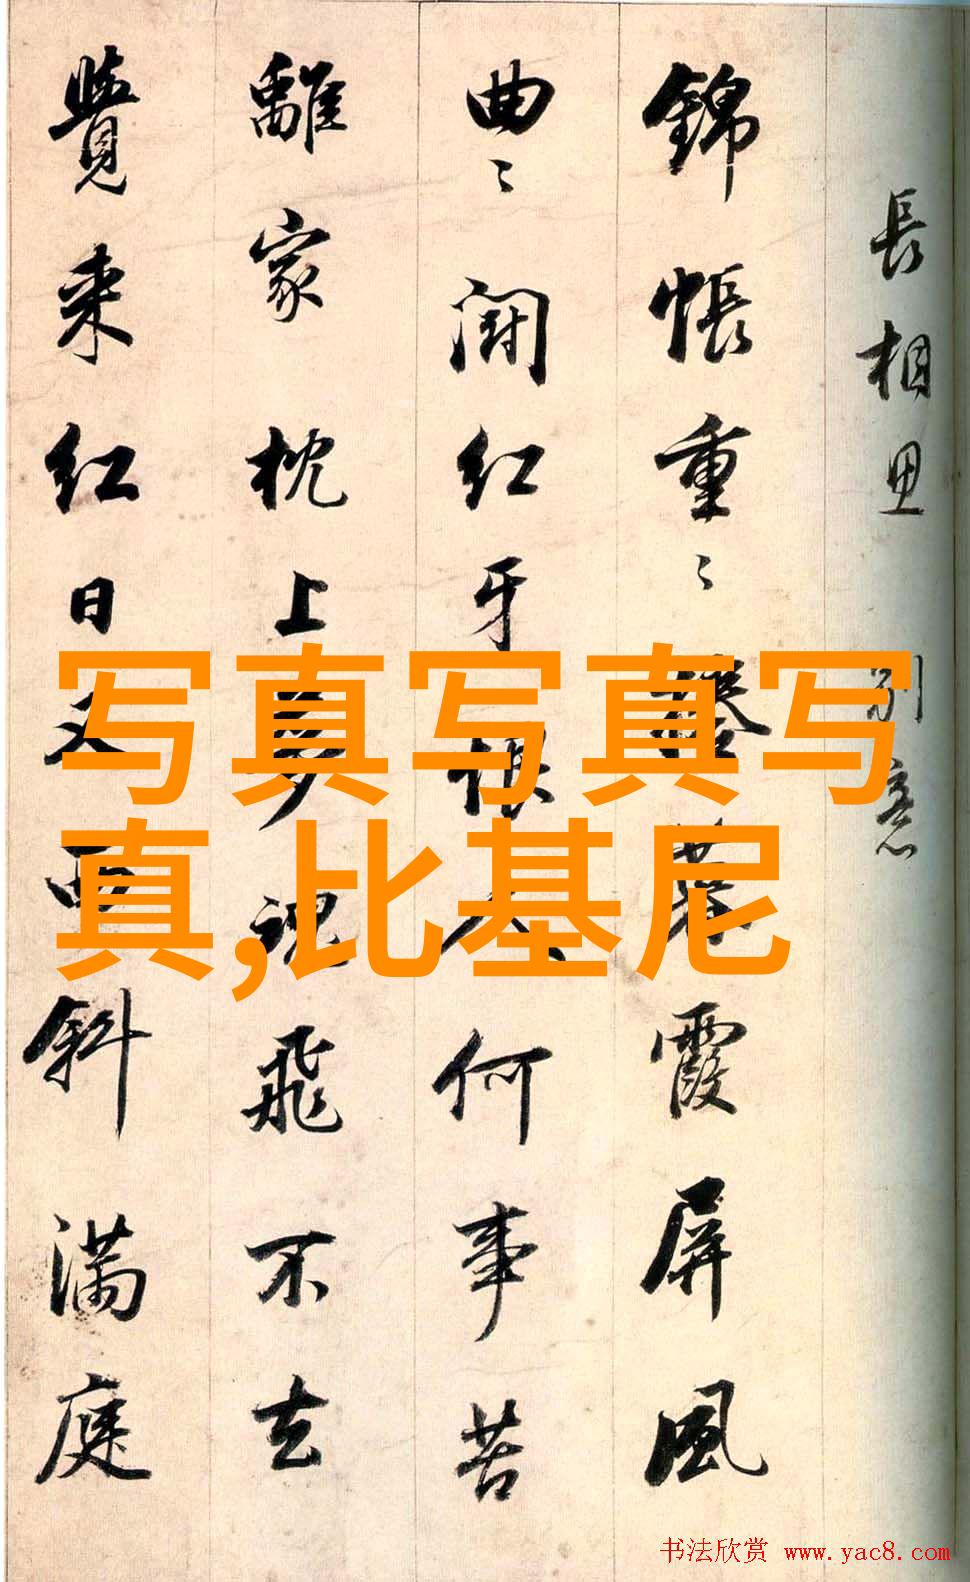 長相思 別意
錦帳重〻捲暮霞屏風
曲〻鬪紅牙恨人何事苦
離家枕上夢魂飛不去
覺來紅日又西斜滿庭
写真写真写
真,比基尼
书法欣赏 www.yac8.com